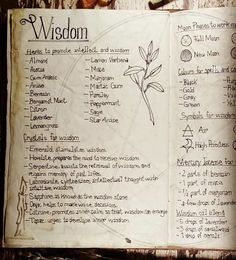 Wisdom
Herbs to promote intellect and wisdom
- Almond
- Acacia
- Gum Arabic
- Anise
- Benzoin
- Bergamot Mint
- Citron
- Lavender
- Lemongrass
- Lemon Verbena
- Mace
- Marjoram
- Mastic Gum
- Parsley
- Peppermint
- Sage
- Star Anise
Crystals for wisdom
- Emerald stimulates wisdom
- Howlite, prepares the mind to receive wisdom
- Serpentine, assists the retrieval of wisdom and
regains memory of past life.
- Labradorite, synthesises intellectual thought with
intuitive wisdom
- Sapphire is known as the wisdom stone
- Onyx helps to make wise
- Calcite, promotes inner calm so that wisdom can emerge
- Topaz, helps to develop inner wisdom
Moon Phases to work
Full Moon
New Moon
Colours for spells and
- Black
- Gold
- Grey
Symbols for wisdom
Air
High Priestess
Mercury Incense for
- 2 parts of benzoin
- 1 part of mace
- ½ part of marjoram
- few drops of lavender
Wisdom oil blend
- 3 drops of lavender
- 1 drop of sandalwood